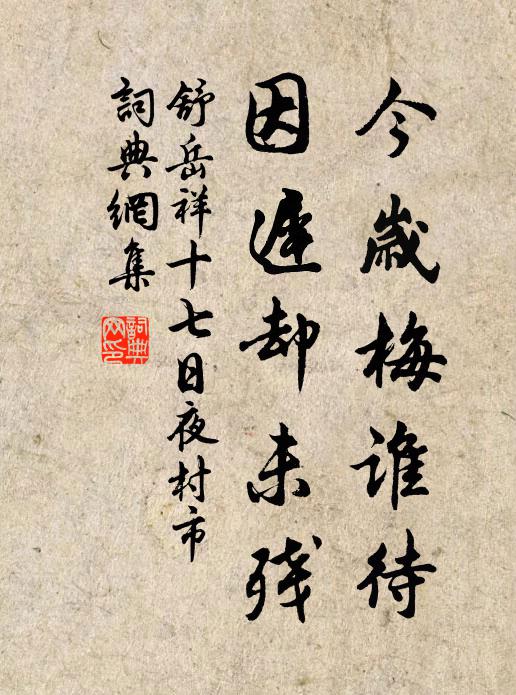 今歲梅誰待
因遲却未殘
舒岳祥十七日夜村市
詞典網集
詞典
网印